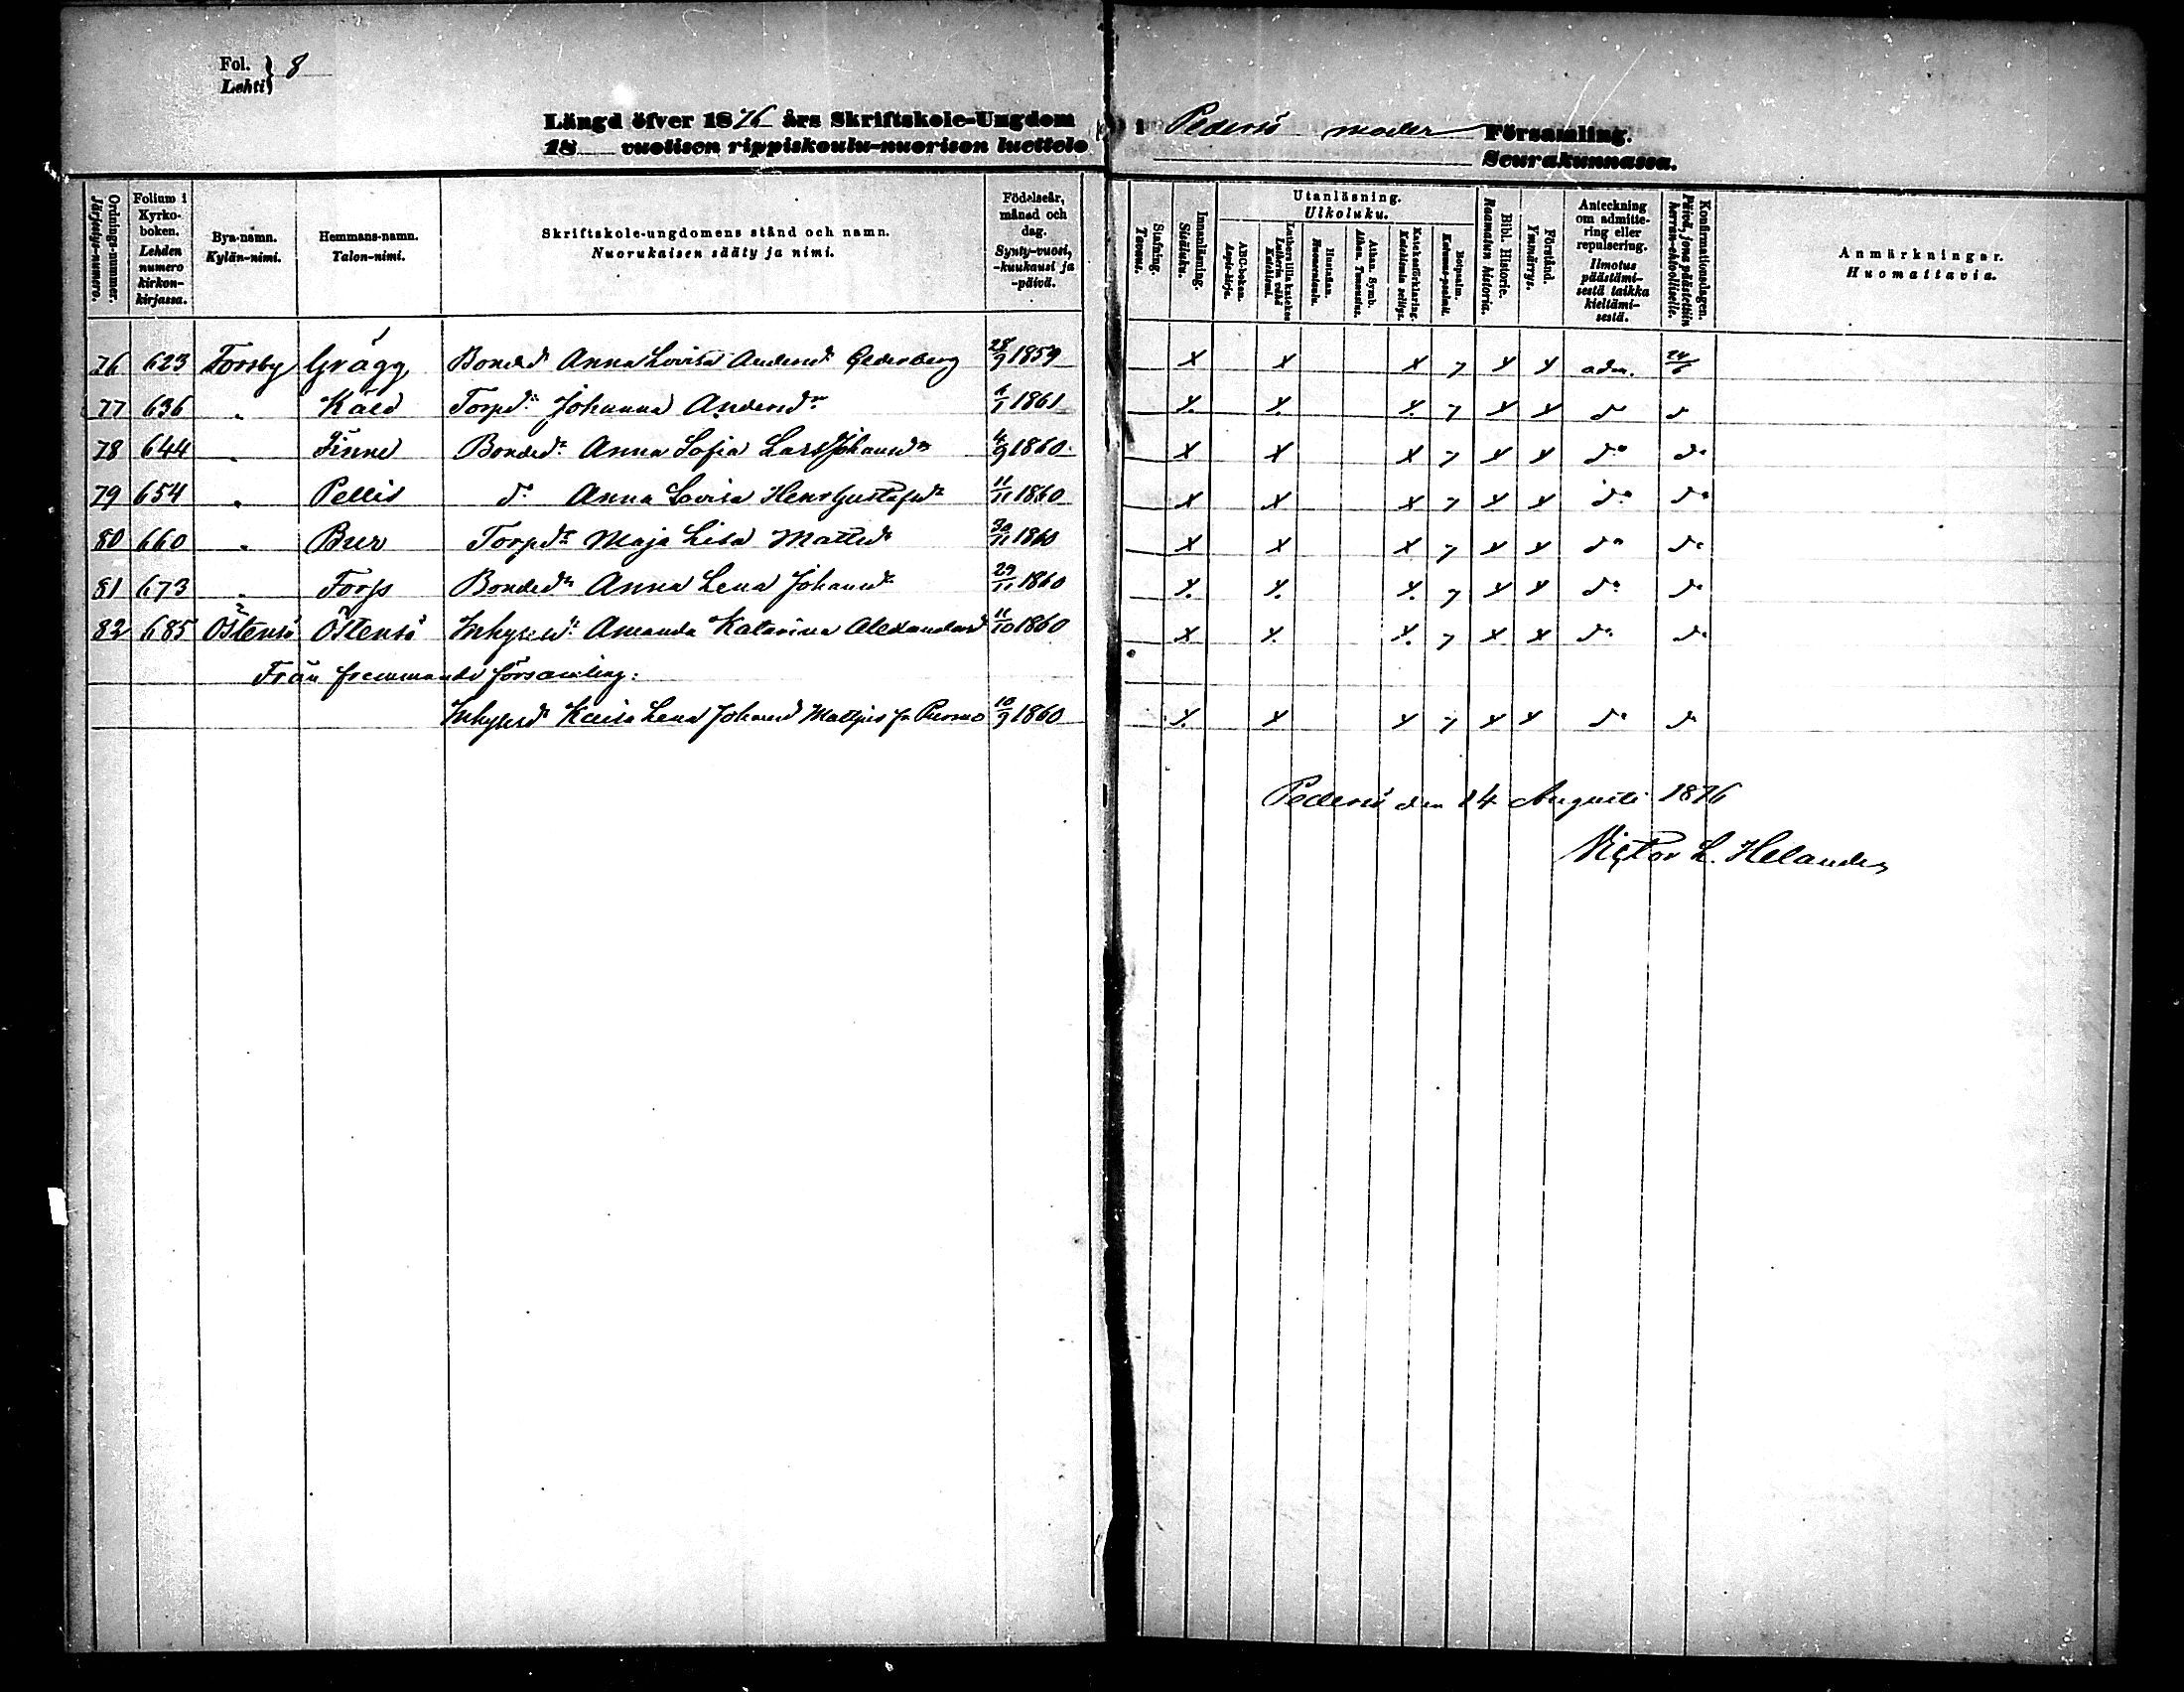 Fol. } 8
Lehti }
Längd öfver 1876 års Skriftskole-Ungdom i Pedersö moder Församling.
18 vuotisen rippiskoulu-nuorison luettelo Seurakunnassa.
Ordnings-nummer. Järjestys-numero.
Folium i Kyrko-boken. Lehden numero kirkon-kirjassa.
Bya-namn. Kylän-nimi.
Hemmans-namn. Talon-nimi.
Skriftskole-ungdomens stånd och namn. Nuorukaisen sääty ja nimi.
Födelseår, månad och dag. Synty-vuosi, -kuukausi ja -päivä.
Stafning. Tavaus.
Innanläsning. Sisäluku.
Utanläsning. Ulkoluku.
ABC-boken. Aapis-kirja.
Lutheri lilla katekes. Lutherin vähä Katekismi.
Hustaflan. Huoneentaulu.
Athan. Symb. Athan. Tunnustus.
Katekesförklaring. Katekismin selitys.
Botpsalm. Katumus-psalmit.
Bibl. Historie. Raamatun historia.
Förstånd. Ymmärrys.
Anteckning om admitte-ring eller repulsering. Ilmotus päästämi-sestä taikka kieltämi-sestä.
Konfirmationsdagen. Päivä, jona päästettiin herran-ehtoolliselle.
Anmärkningar. Huomattavia.
76 623 Forsby Grägg Bonded. Anna Lovisa Andersd. Cederberg 28/9 1859 x x x 7 x x adm. 24/6
77 636 " Käld Torpd:r Johanna Andersd:r 6/1 1861 x x x 7 x x d:o d:o
78 644 " Finne Bonded:r Anna Sofia Lars Johansd:r 4/9 1860 x x x 7 x x d:o d:o
79 654 " Pellis d:o Anna Lovisa Henr Gustafsd:r 11/11 1860 x x x 7 x x d:o d:o
80 660 " Buer Torpd:r Maja Lisa Mattsd:r 30/11 1860 x x x 7 x x d:o d:o
81 673 " Forss Bonded:r Anna Lena Johansd:r 29/11 1860 x x x 7 x x d:o d:o
82 685 Östensö Östensö Inhysesd:r Amanda Katarina Alexandersd 11/10 1860 x x x 7 x x d:o d:o
Från fremmande församling:
Inhysesd:r Kaisa Lena Johansd Mattjus fr Purmo 10/9 1860 x x x 7 x x d:o d:o
Pedersö den 14 Augusti 1876
Victor L. Helander